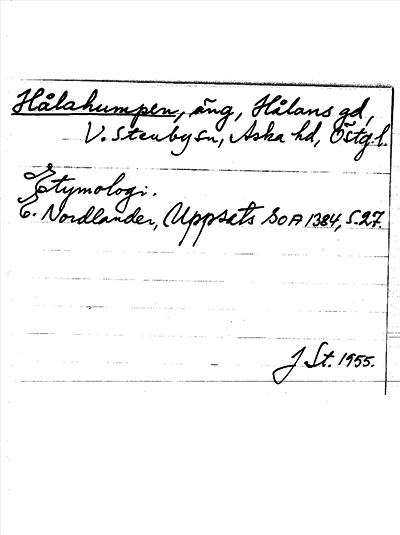 Hålahumpen, äng, Hålans gd,
V. Stenby sn, Aska hd, Östg.l.
Etymologi.
E. Nordlander, Uppsats SOA 1384, s. 27.
J St. 1955.